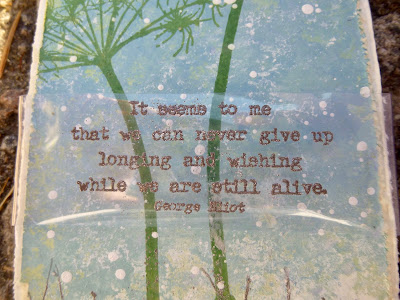 It seems to me
that we can never give up
longing and wishing
while we are still alive.
George Eliot